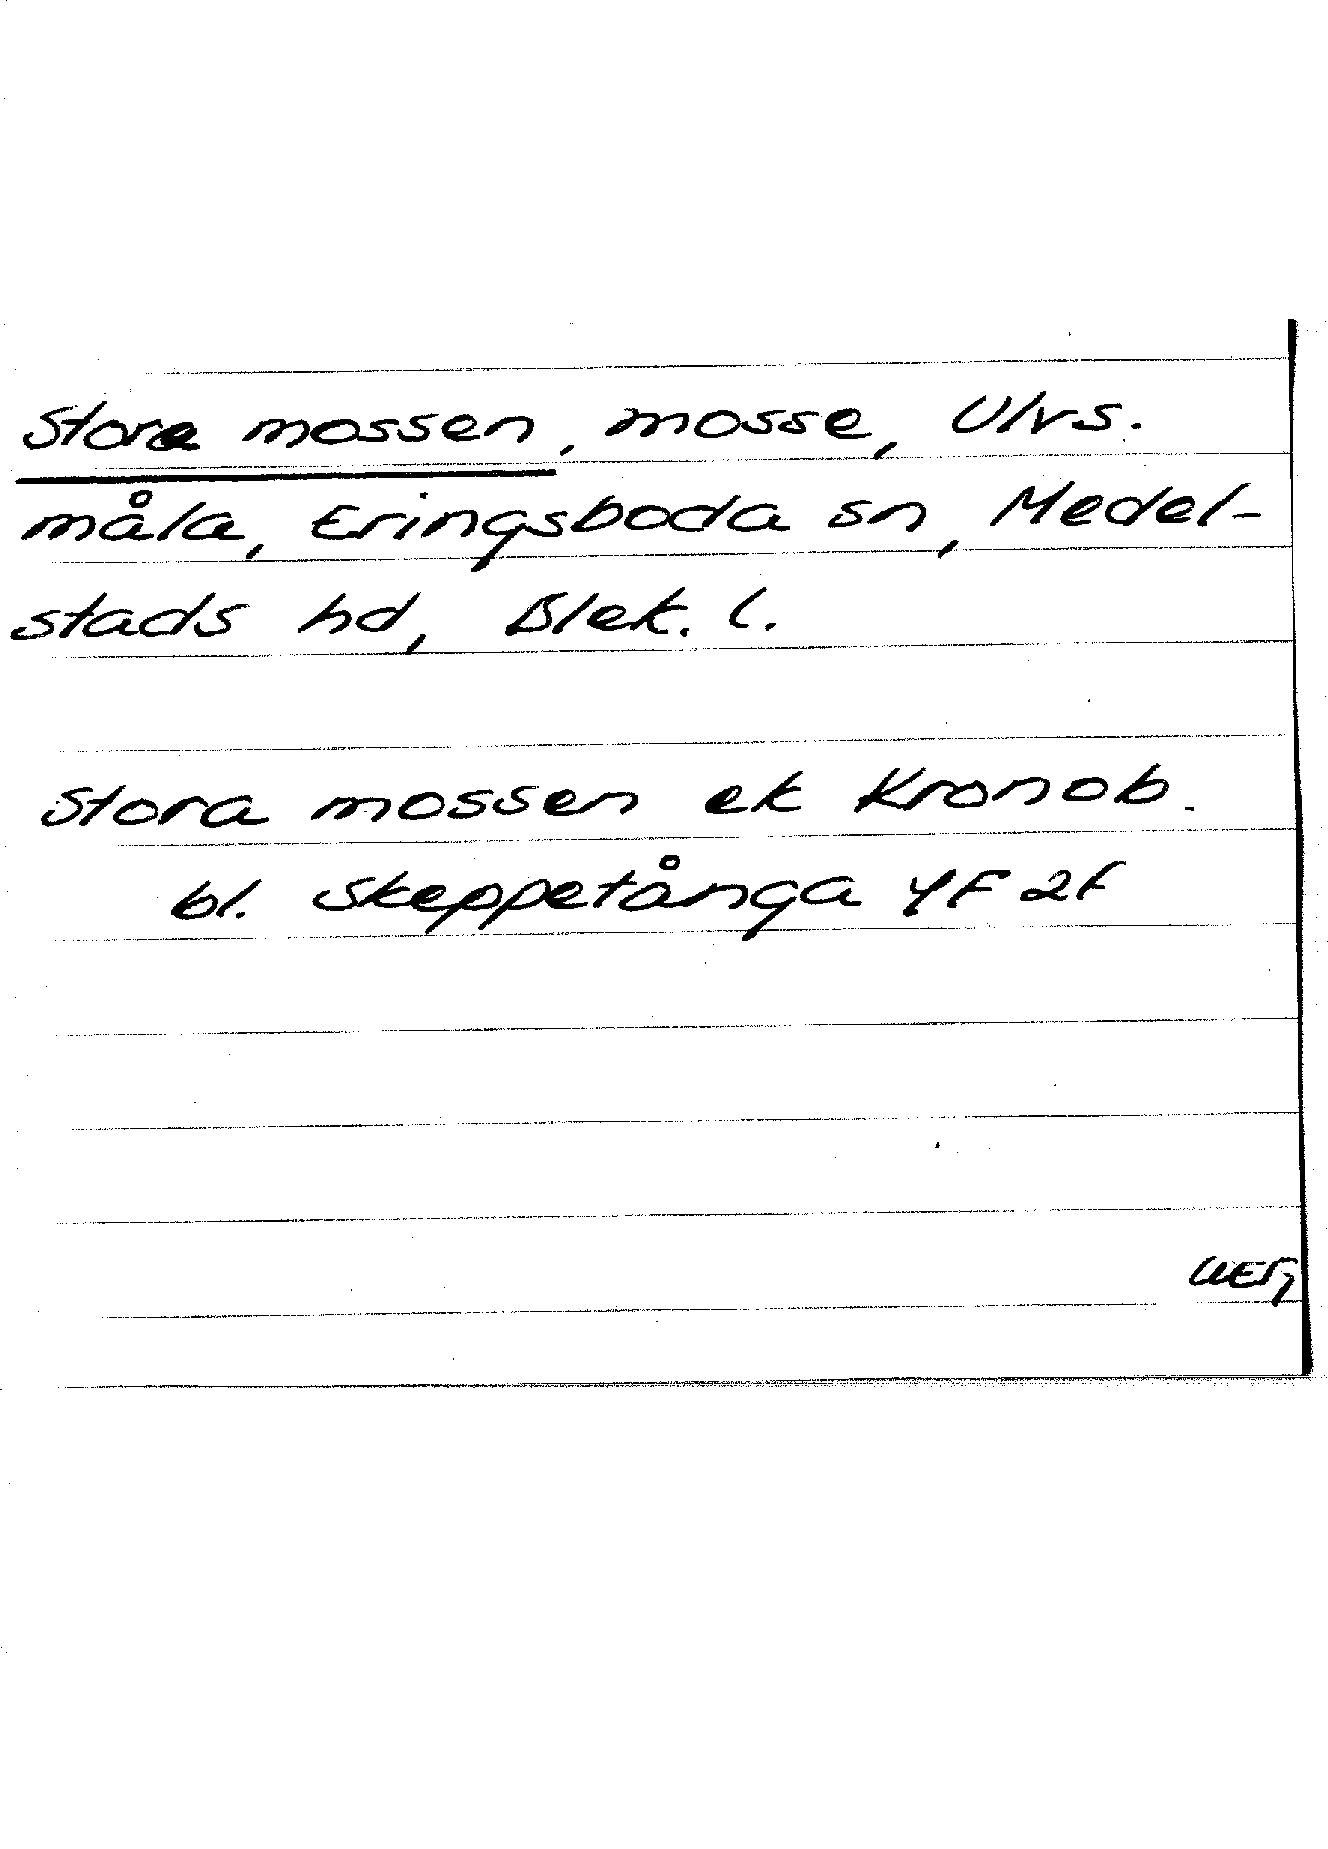 Store mossen, mosse, Ulvs.
måla, Eringsboda sn, Medel-
stads hd, Blek. l.
Stora mossen ek Kronob.
bl. Skeppetånga 4F 2f